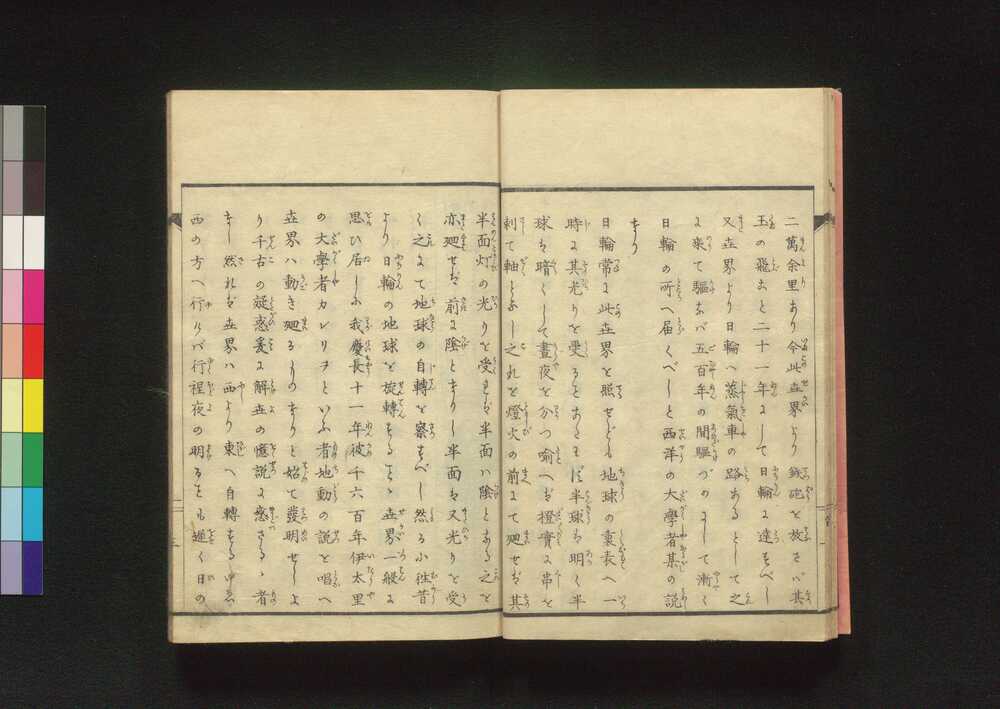 二萬余里あり今此世界より鉄砲を放さバ其
玉の飛こと二十一年にして日輪に達すべし
又世界より日輪へ蒸氣車の路あるとして之
に乘て驅ルバ五百年の間驅づめにして漸く
日輪の所へ届くべしと西洋の大學者某の説
なり
日輪常に此世界を照せども地球の裏表へ一
時に其光りを受ることあたはず半球ハ明く半
球は暗くして晝夜を分つ喻へば橙實に串を
刺て軸となし之れを燈火の前にて廻せば其
半面灯の光りを受れば半面ハ陰となる之を
亦廻せば前に陰となりし半面は又光りを受
く之にて地球の自轉を察すべし然るに往昔
より日輪の地球を旋轉することゝ世界一般に
思ひ居しに我慶長十一年彼千六百年伊太里
の大學者カレリヲといふ者地動の説を唱へ
世界ハ動き廻るものなりと始て發明せしよ
り千古の疑惑爰に解世の憶説に惑さるゝ者
なし然れば世界ハ西より東へ自轉する ゆゑ
西の方へ行けバ行程夜の明るはも遲く日の